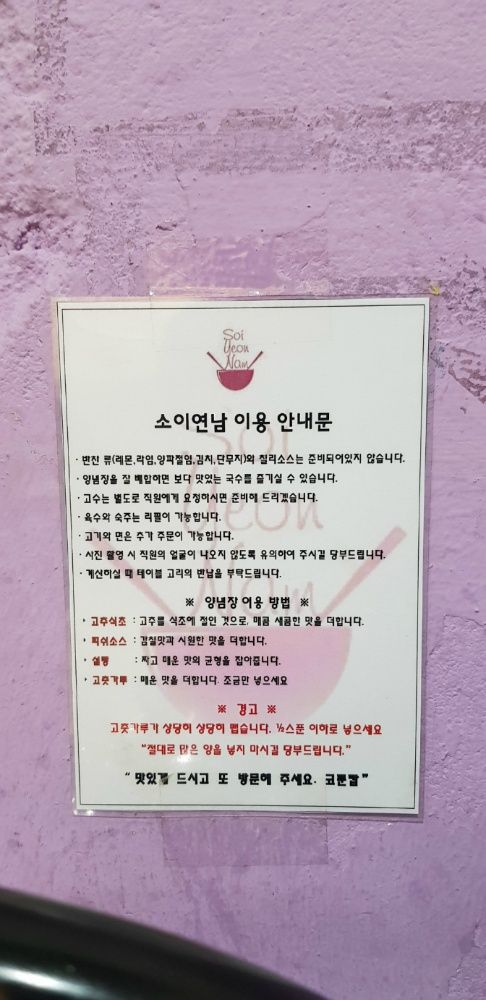 Soi
Yeon
Nam
소이연남 이용 안내문
· 반찬 류(레몬,라임,양파절임,김치,단무지)와 칠리소스는 준비되어있지 않습니다.
· 양념장을 잘 배합하면 보다 맛있는 국수를 즐기실 수 있습니다.
· 고수는 별도로 직원에게 요청하시면 준비해 드리겠습니다.
· 육수와 숙주는 리필이 가능합니다.
· 고기와 면은 추가 주문이 가능합니다.
· 사진 촬영 시 직원의 얼굴이 나오지 않도록 유의하여 주시길 당부드립니다.
· 계산하실 때 테이블 고리의 반납을 부탁드립니다.
※ 양념장 이용 방법 ※
고추식초 : 고추를 식초에 절인 것으로, 매콤 새콤한 맛을 더합니다.
피쉬소스 : 감칠맛과 시원한 맛을 더합니다.
설탕 : 짜고 매운 맛의 균형을 잡아줍니다.
고춧가루 : 매운 맛을 더합니다. 조금만 넣으세요
※ 경고 ※
고춧가루가 상당히 상당히 맵습니다. ½스푼 이하로 넣으세요
"절대로 많은 양을 넣지 마시길 당부드립니다."
" 맛있게 드시고 또 방문해 주세요. 코쿤캅"
Soi
Yeon
Nam